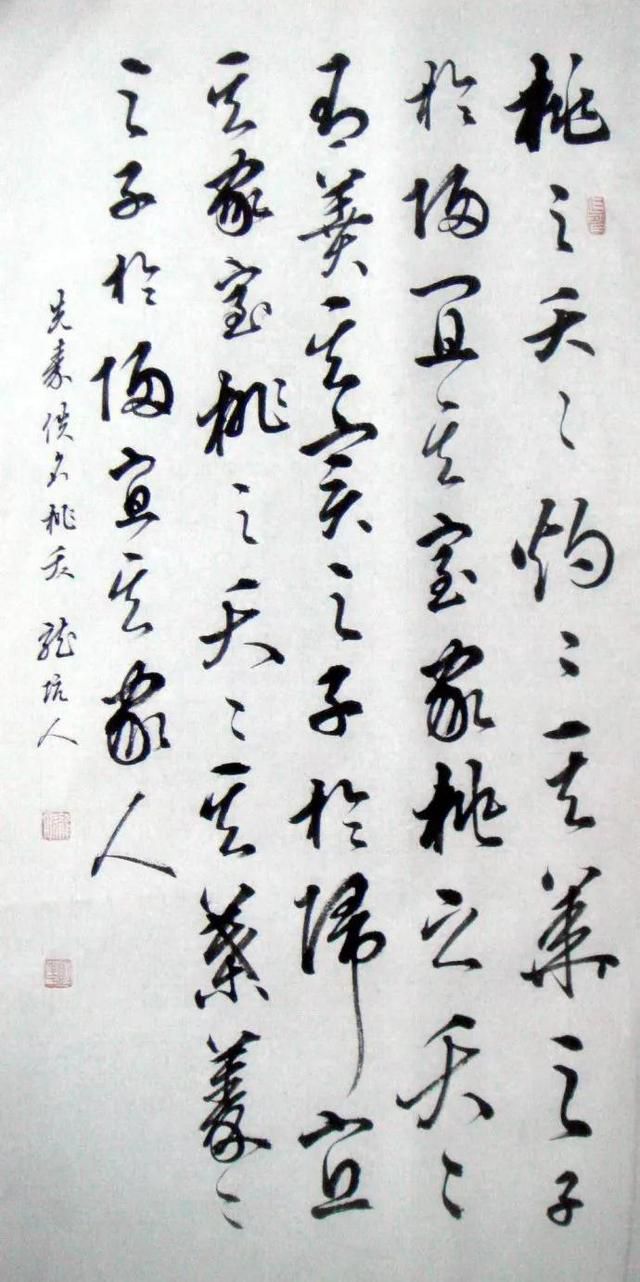 桃之夭〻灼〻其華之子
於歸宜其室家桃之夭〻
有蕡其實之子於歸宜
其家室桃之夭〻其葉蓁〻
之子於歸宜其家人
先秦佚名桃夭 龍坑人